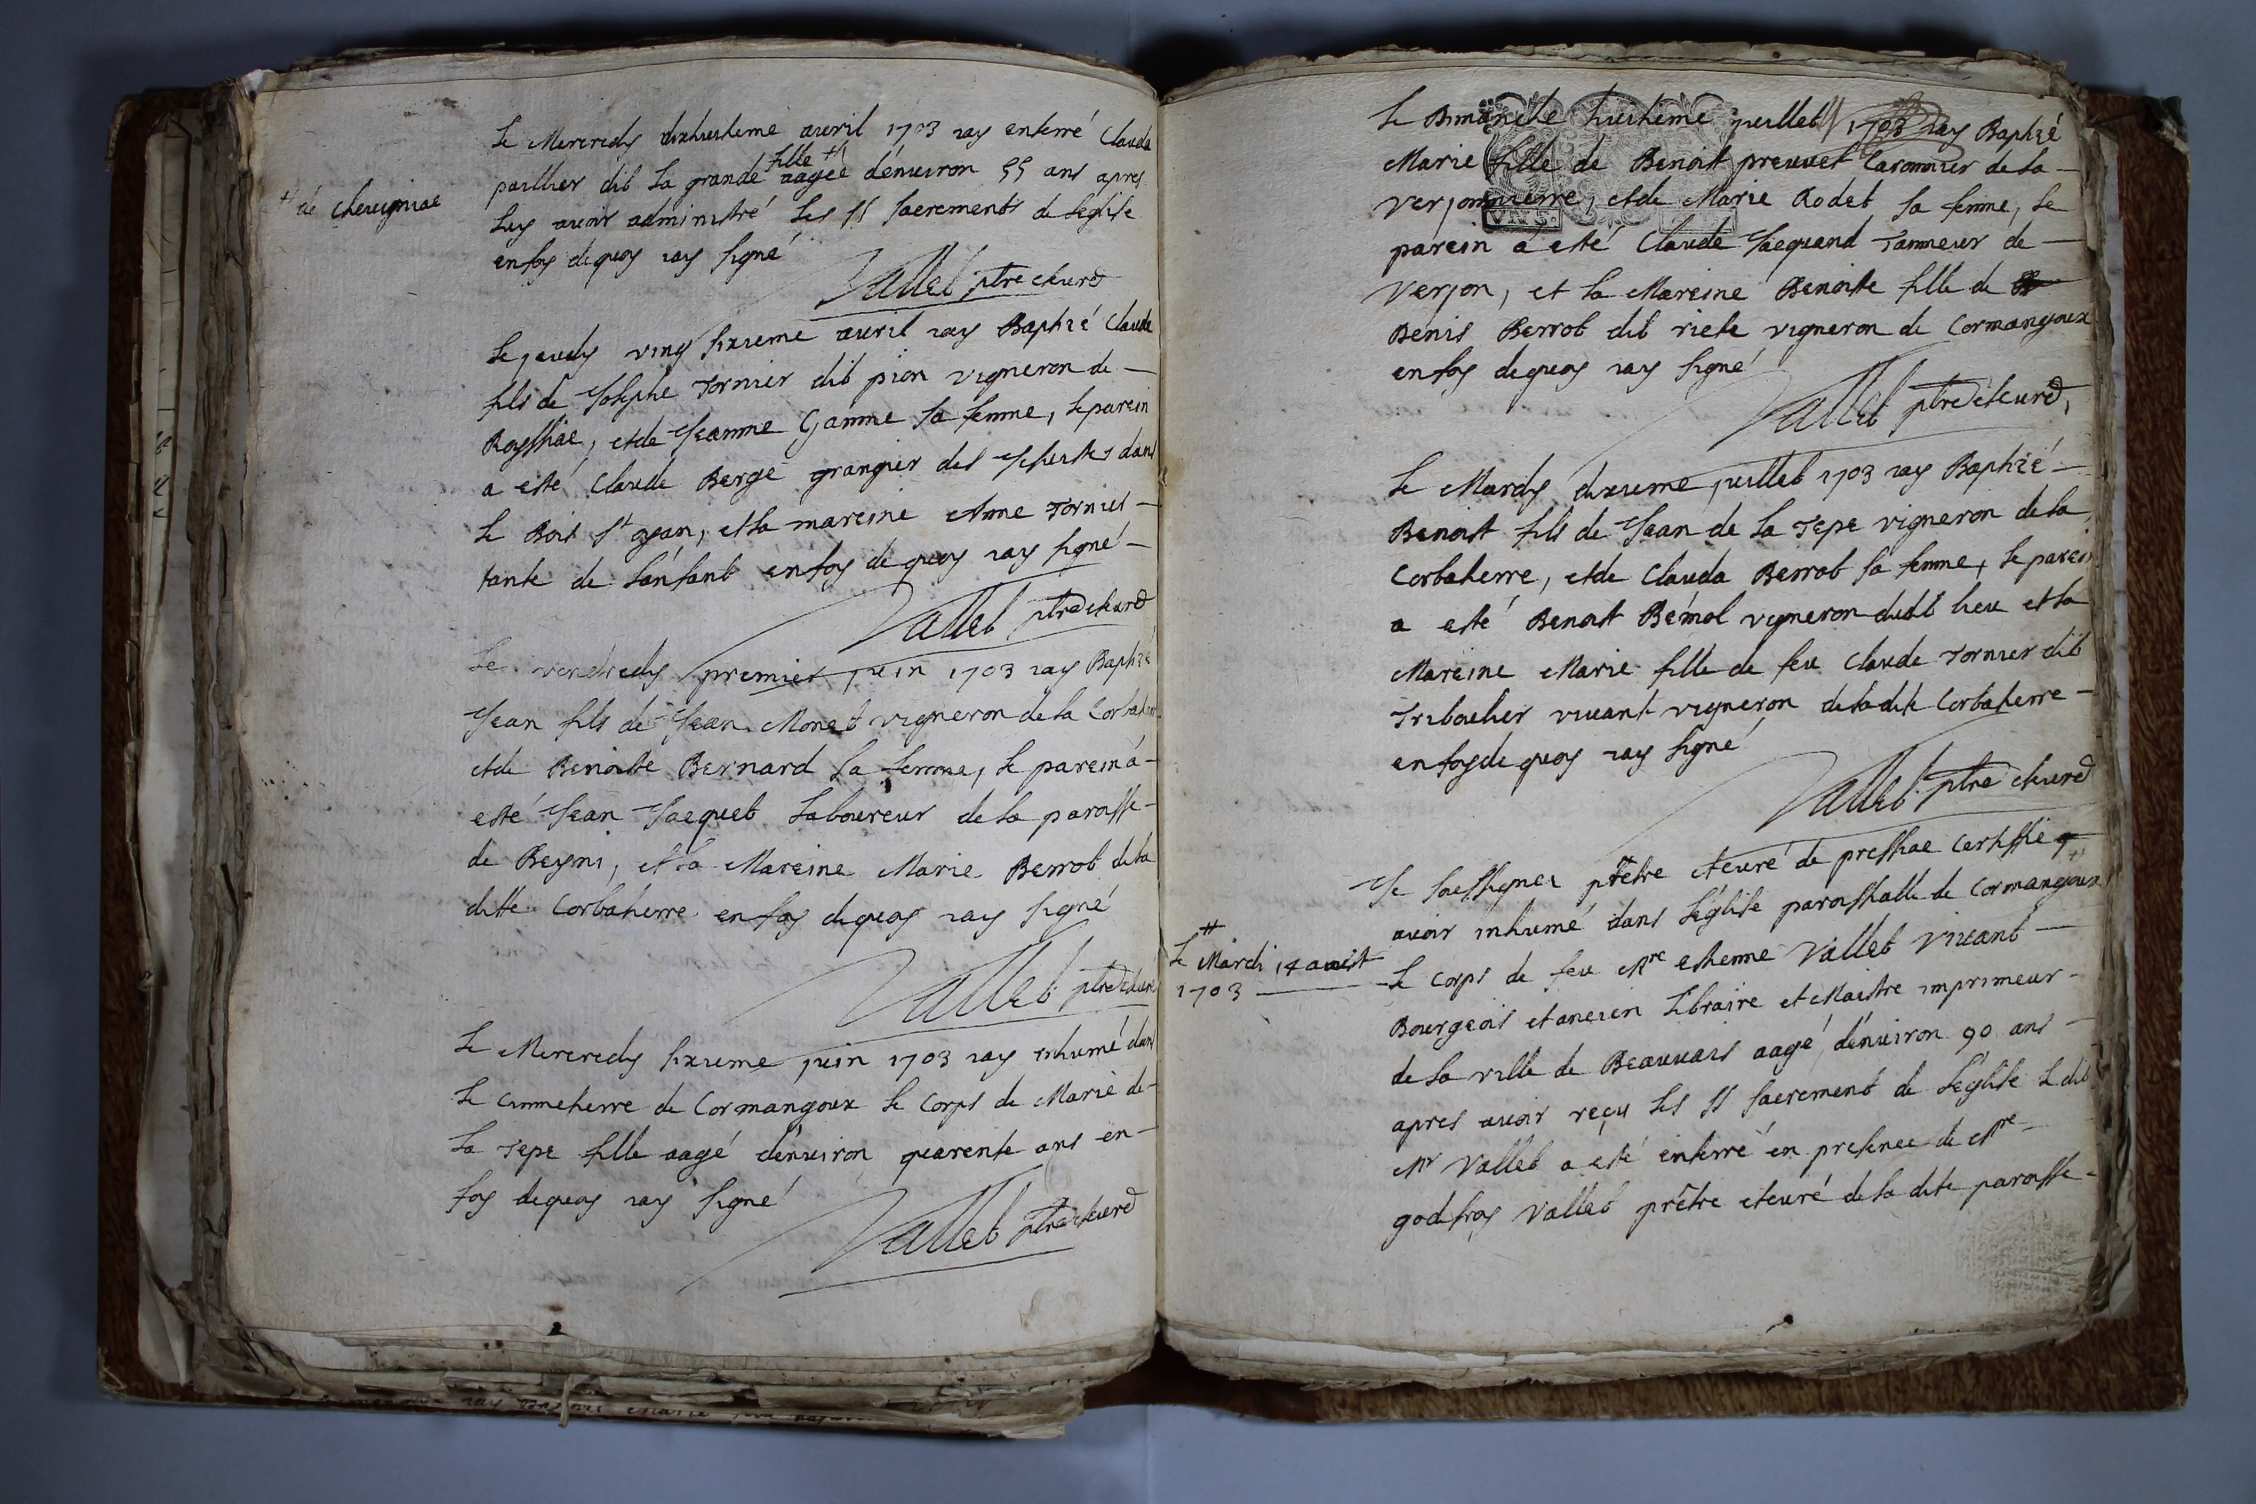 Le Mercredy dixhuitieme avril 1703 iay enterré Clauda
paillier dit la grande fille ++ aagée d'enuiron 55 ans apres
++ de Chevigniac
luy avoir administré les SS sacrements de leglise
en foy dequoy iay signé
Vallet ptre et curé
Le jeudy vingt sixieme avril iay Baptizé Claude
fils de Josephe Tornier dit pion vigneron de
Royssiac, et de Jeanne Ganme sa femme, le parein
a esté Claude Berge grangier des Jesuites dans
le Bois St oyan, et la mareine Anne Tornier
tante de lénfant en foy de quoy iay signé
Vallet ptre et curé
Le vendredy premier juin 1703 iay Baptizé
Jean fils de Jean Monet vigneron de la Corbaterre
et de Benoite Bernard sa femme, le parein a
esté Jean Jacquet laboureur de la paroisse
de Beyni, et la Mareine Marie Berrot de la
ditte Corbaterre en foy dequoy iay signé
Vallet ptre et curé
Le Mercredy sixieme juin 1703 iay inhumé dans
le cimmetierre de Cormangoux le Corps de Marie de
la Tepe fille aagé d'enuiron quarente ans en
foy dequoy iay signé
Vallet ptre et curé
Le Dimanche huitieme juillet 1703 iay Baptizé
Marie fille de Benoit preuvet Savonnier de la
verjonnierre, et de Marie Rodet sa femme, le
parein a esté Claude Jacquand Tanneur de
Verjon, et la Mareine Benoite fille de
Denis Berrot dit riete vigneron de Cormangoux
en foy dequoy iay signé
Vallet ptre et curé,
Le Mardy dixieme juillet 1703 iay Baptizé
Benoist fils de Jean de la Tepe vigneron de la
Corbaterre, et de Clauda Berrot sa femme, le parein
a esté Benoit Bémol vigneron dudit lieu et la
Mareine Marie fille de feu Claude Tornier dit
Triboulier vivant vigneron de ladite Corbaterre
en foy de quoy iay signé
Vallet ptre et curé
Je soussigner prêtre et curé de pressiac certiffie ++
++ le Mardi 14 aoust 1703
avoir inhumé dans l'église paroissialle de Cormangoux
le corps de feu Mre estienne Vallet vivant
Bourgeois et ancien Libraire et Maistre imprimeur
de la ville de Beauvais aagé d'enuiron 90 ans
apres avoir reçu les SS sacrement de l'église le dit
Mr Vallet a été enterré en presence de Mre
godfroy Vallet prêtre et curé de la dite paroisse